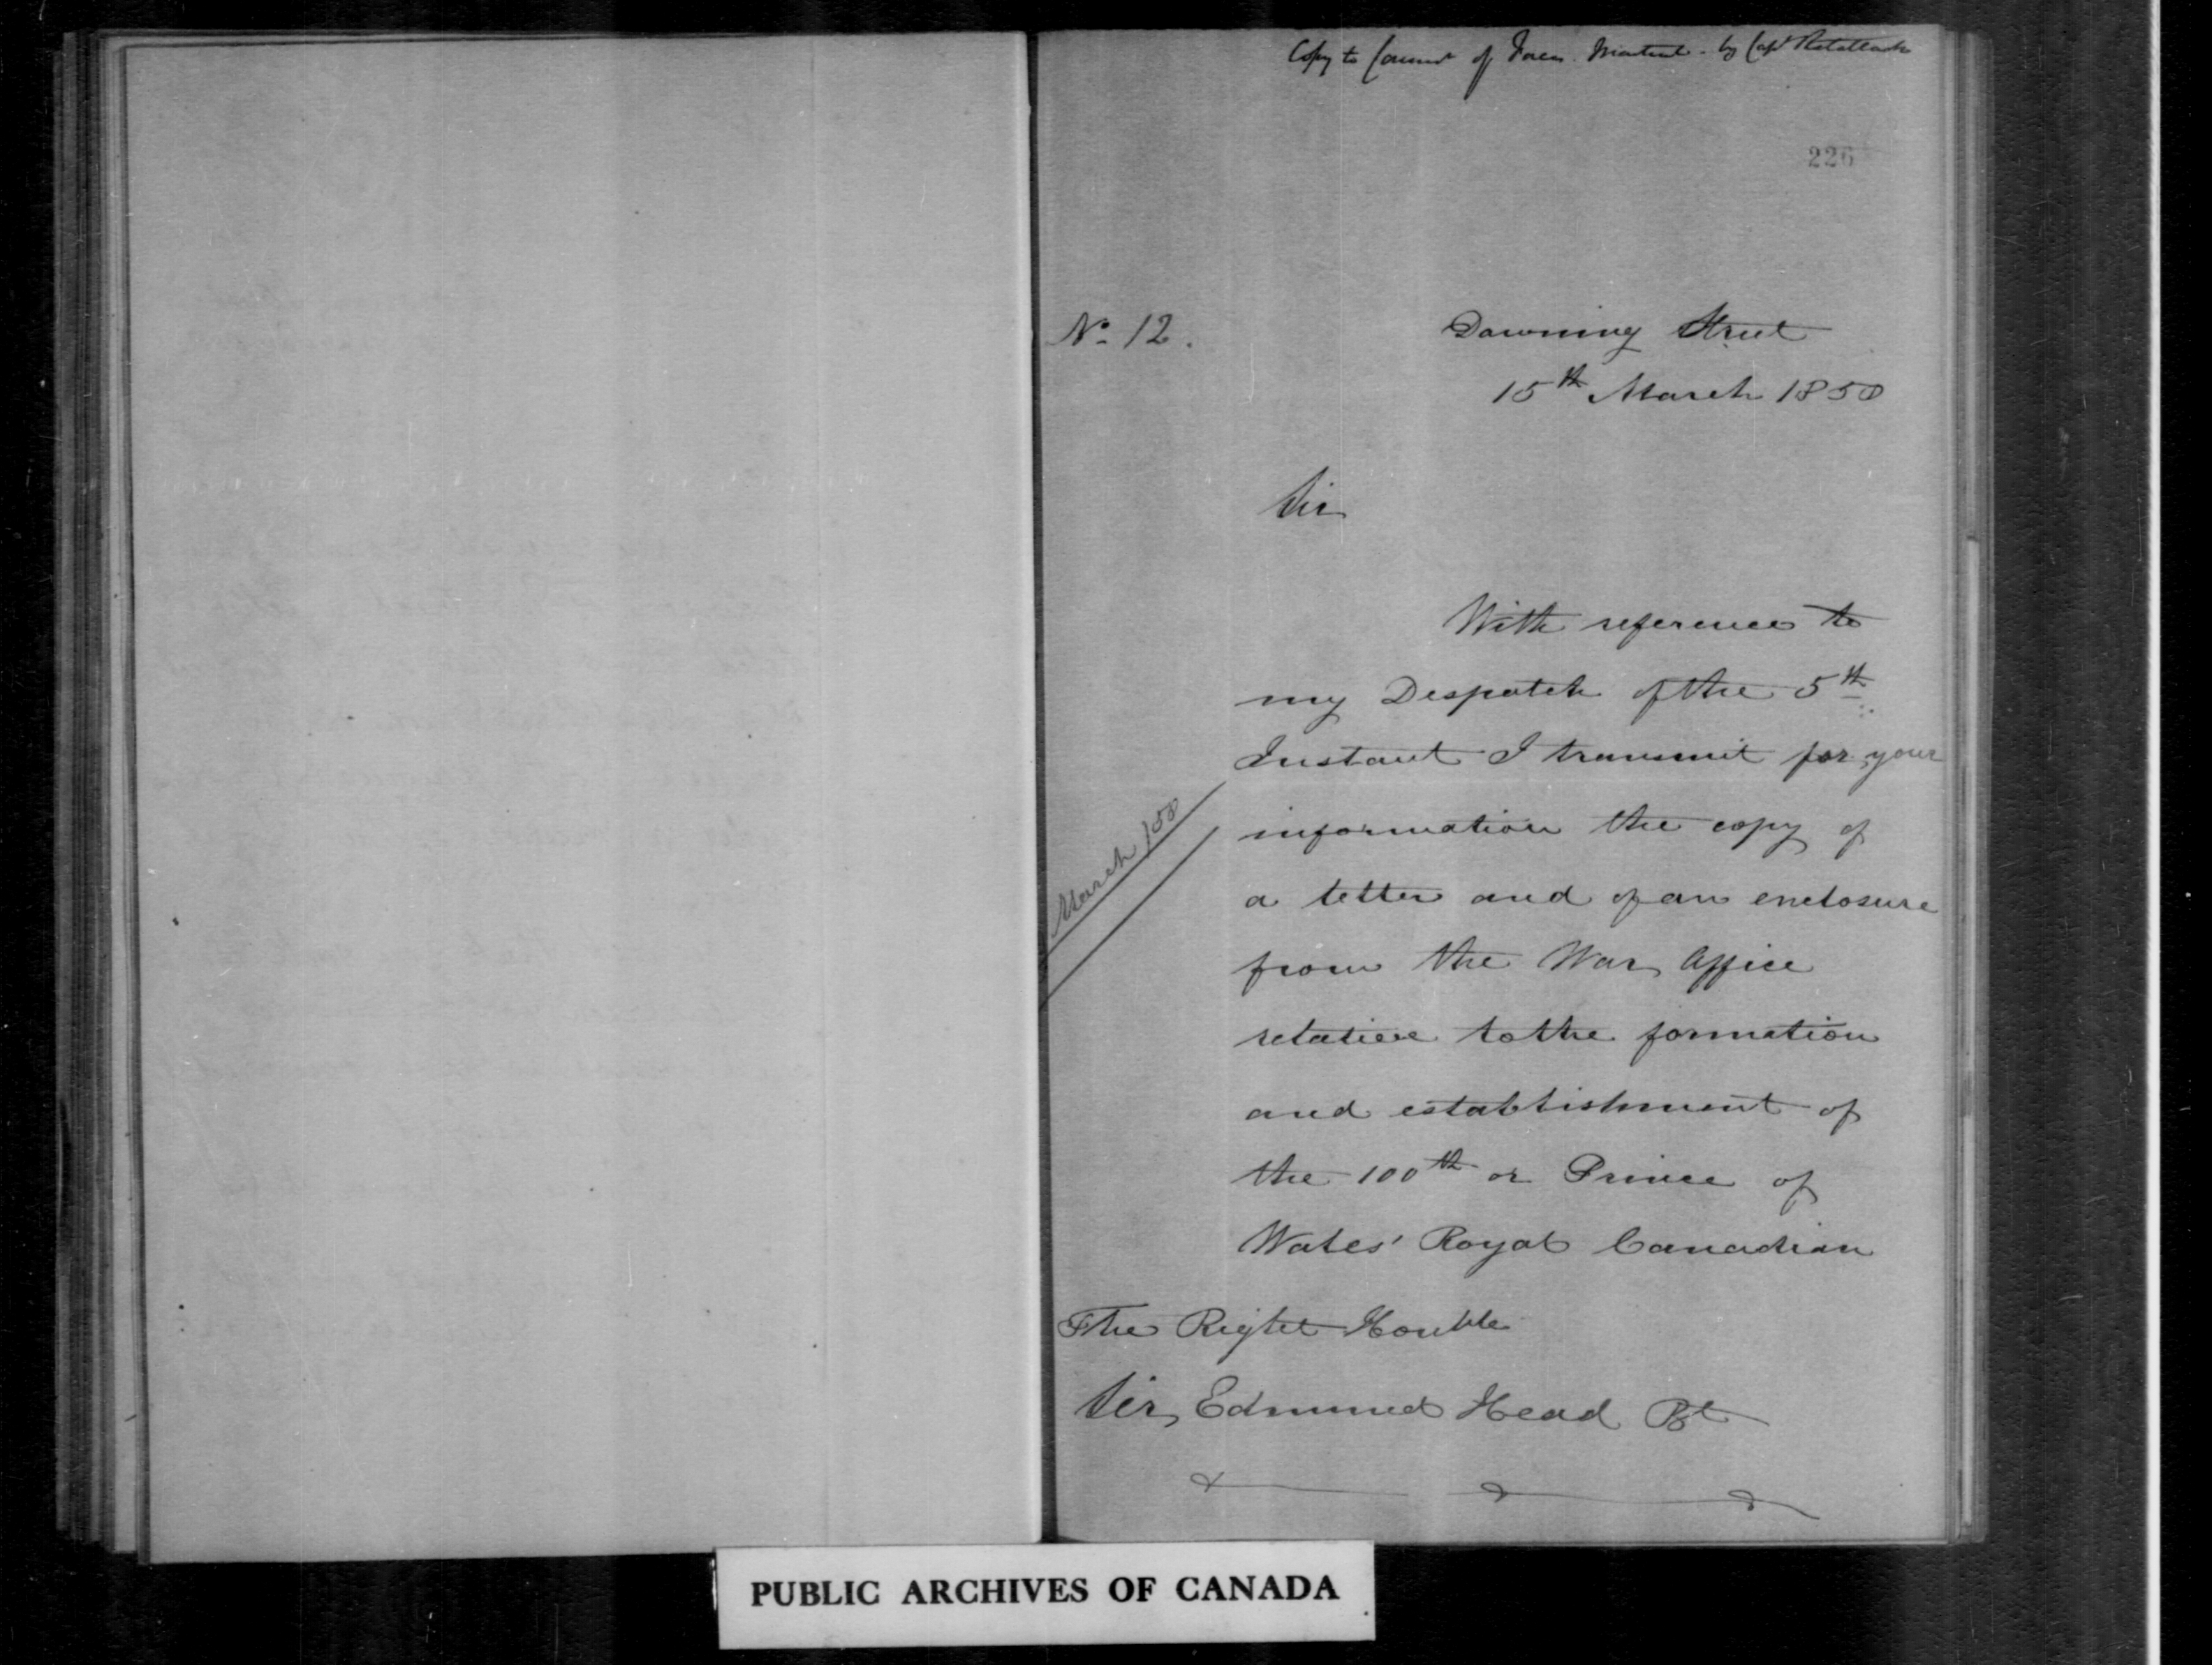 Copy to Command of Forces. Montreal - by Capt Retallack
226
No. 12.
Downing Street
15th March 1858
Sir
With reference to
my Despatch of the 5th
Instant I transmit for your
information the copy of
March /58
a letter and of an enclosure
from the War Office
relative to the formation
and establishment of
the 100th or Prince of
Wales' Royal Canadian
The Right Honble
Sir Edmund Head Bt
PUBLIC ARCHIVES OF CANADA